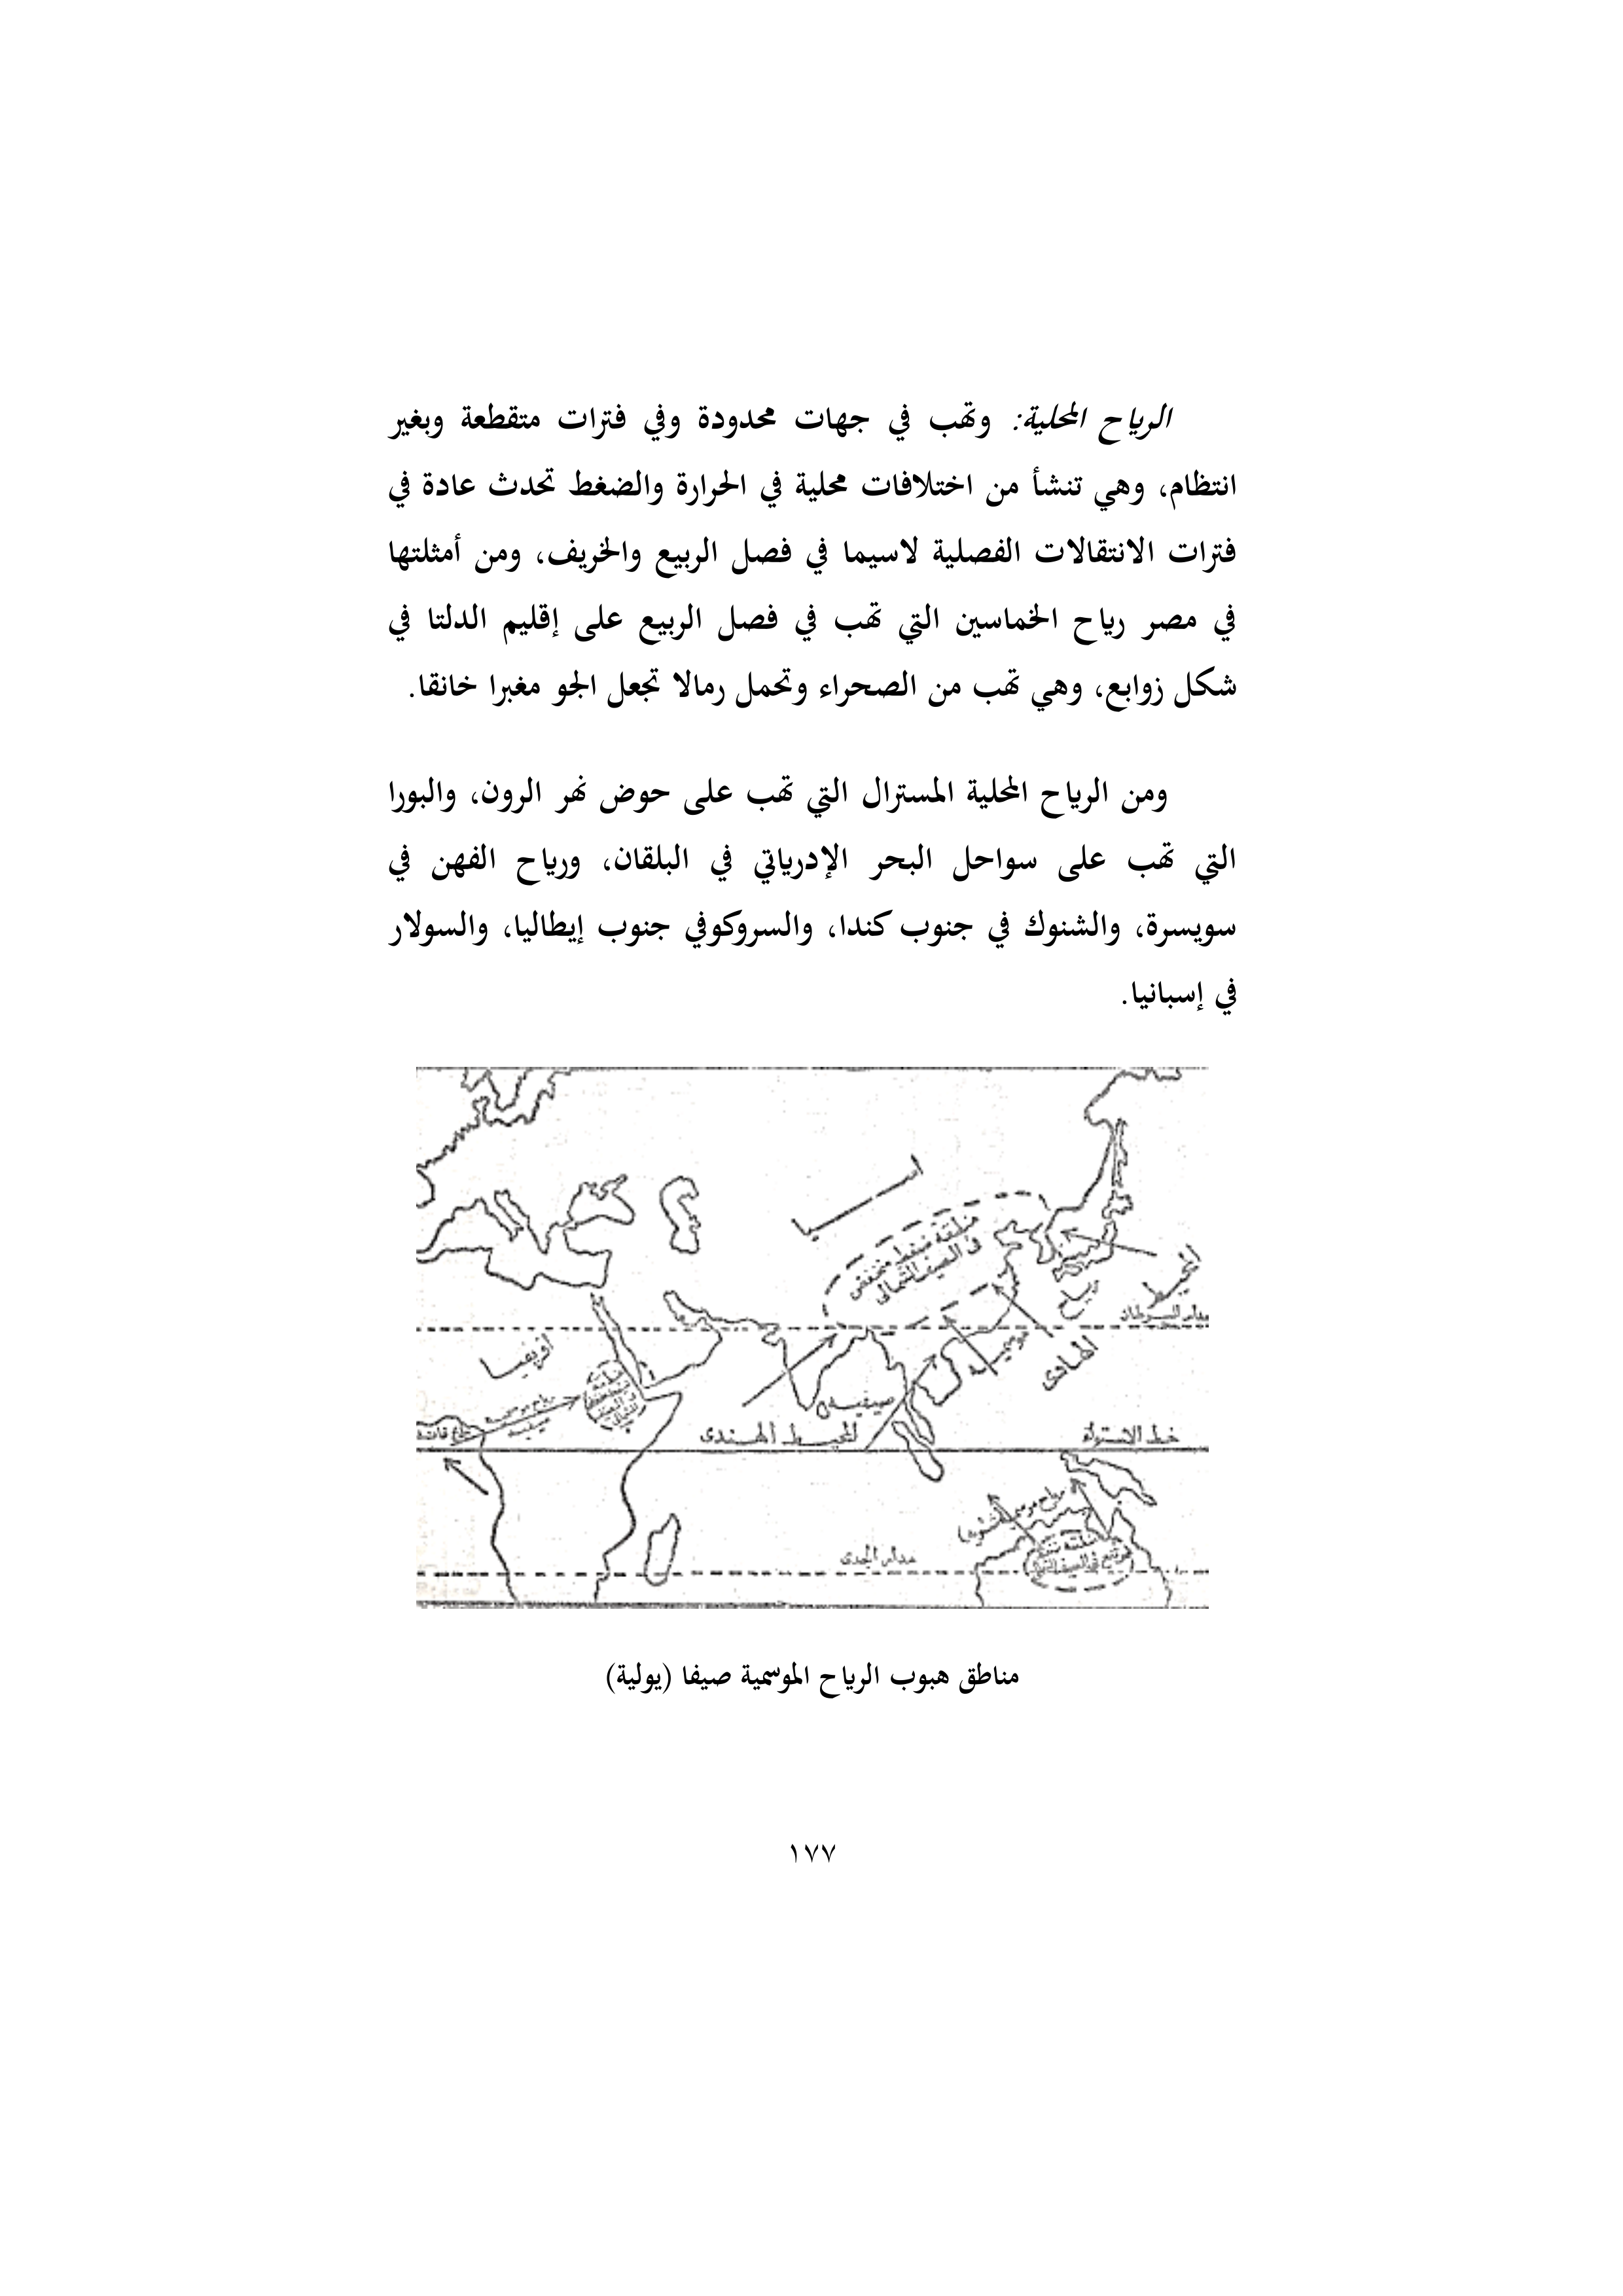 الرياح المحلية: وتهب في جهات محدودة وفي فترات متقطعة وبغير
انتظام، وهي تنشأ من اختلافات محلية في الحرارة والضغط تحدث عادة في
فترات الانتقالات الفصلية لاسيما في فصل الربيع والخريف، ومن أمثلتها
في مصر رياح الخماسين التي تهب في فصل الربيع على إقليم الدلتا في
شكل زوابع، وهي تهب من الصحراء وتحمل رمالا تجعل الجو مغبرا خانقا.
ومن الرياح المحلية المسترال التي تهب على حوض نهر الرون، والبورا
التي تهب على سواحل البحر الإدرياتي في البلقان، ورياح الفهن في
سويسرة، والشنوك في جنوب كندا، والسروكوفي جنوب إيطاليا، والسولار
في إسبانيا.
آسيا
منطقة ضغط منخفض
في الصيف الشمالي
المحيط
الهادى
رياح
موسمية
صيفية
مدار السرطان
أفريقيا
رياح موسمية
صيفية
المحيط الهندى
خط الاستواء
مدار الجدى
مناطق هبوب الرياح الموسمية صيفا (يولية)
١٧٧